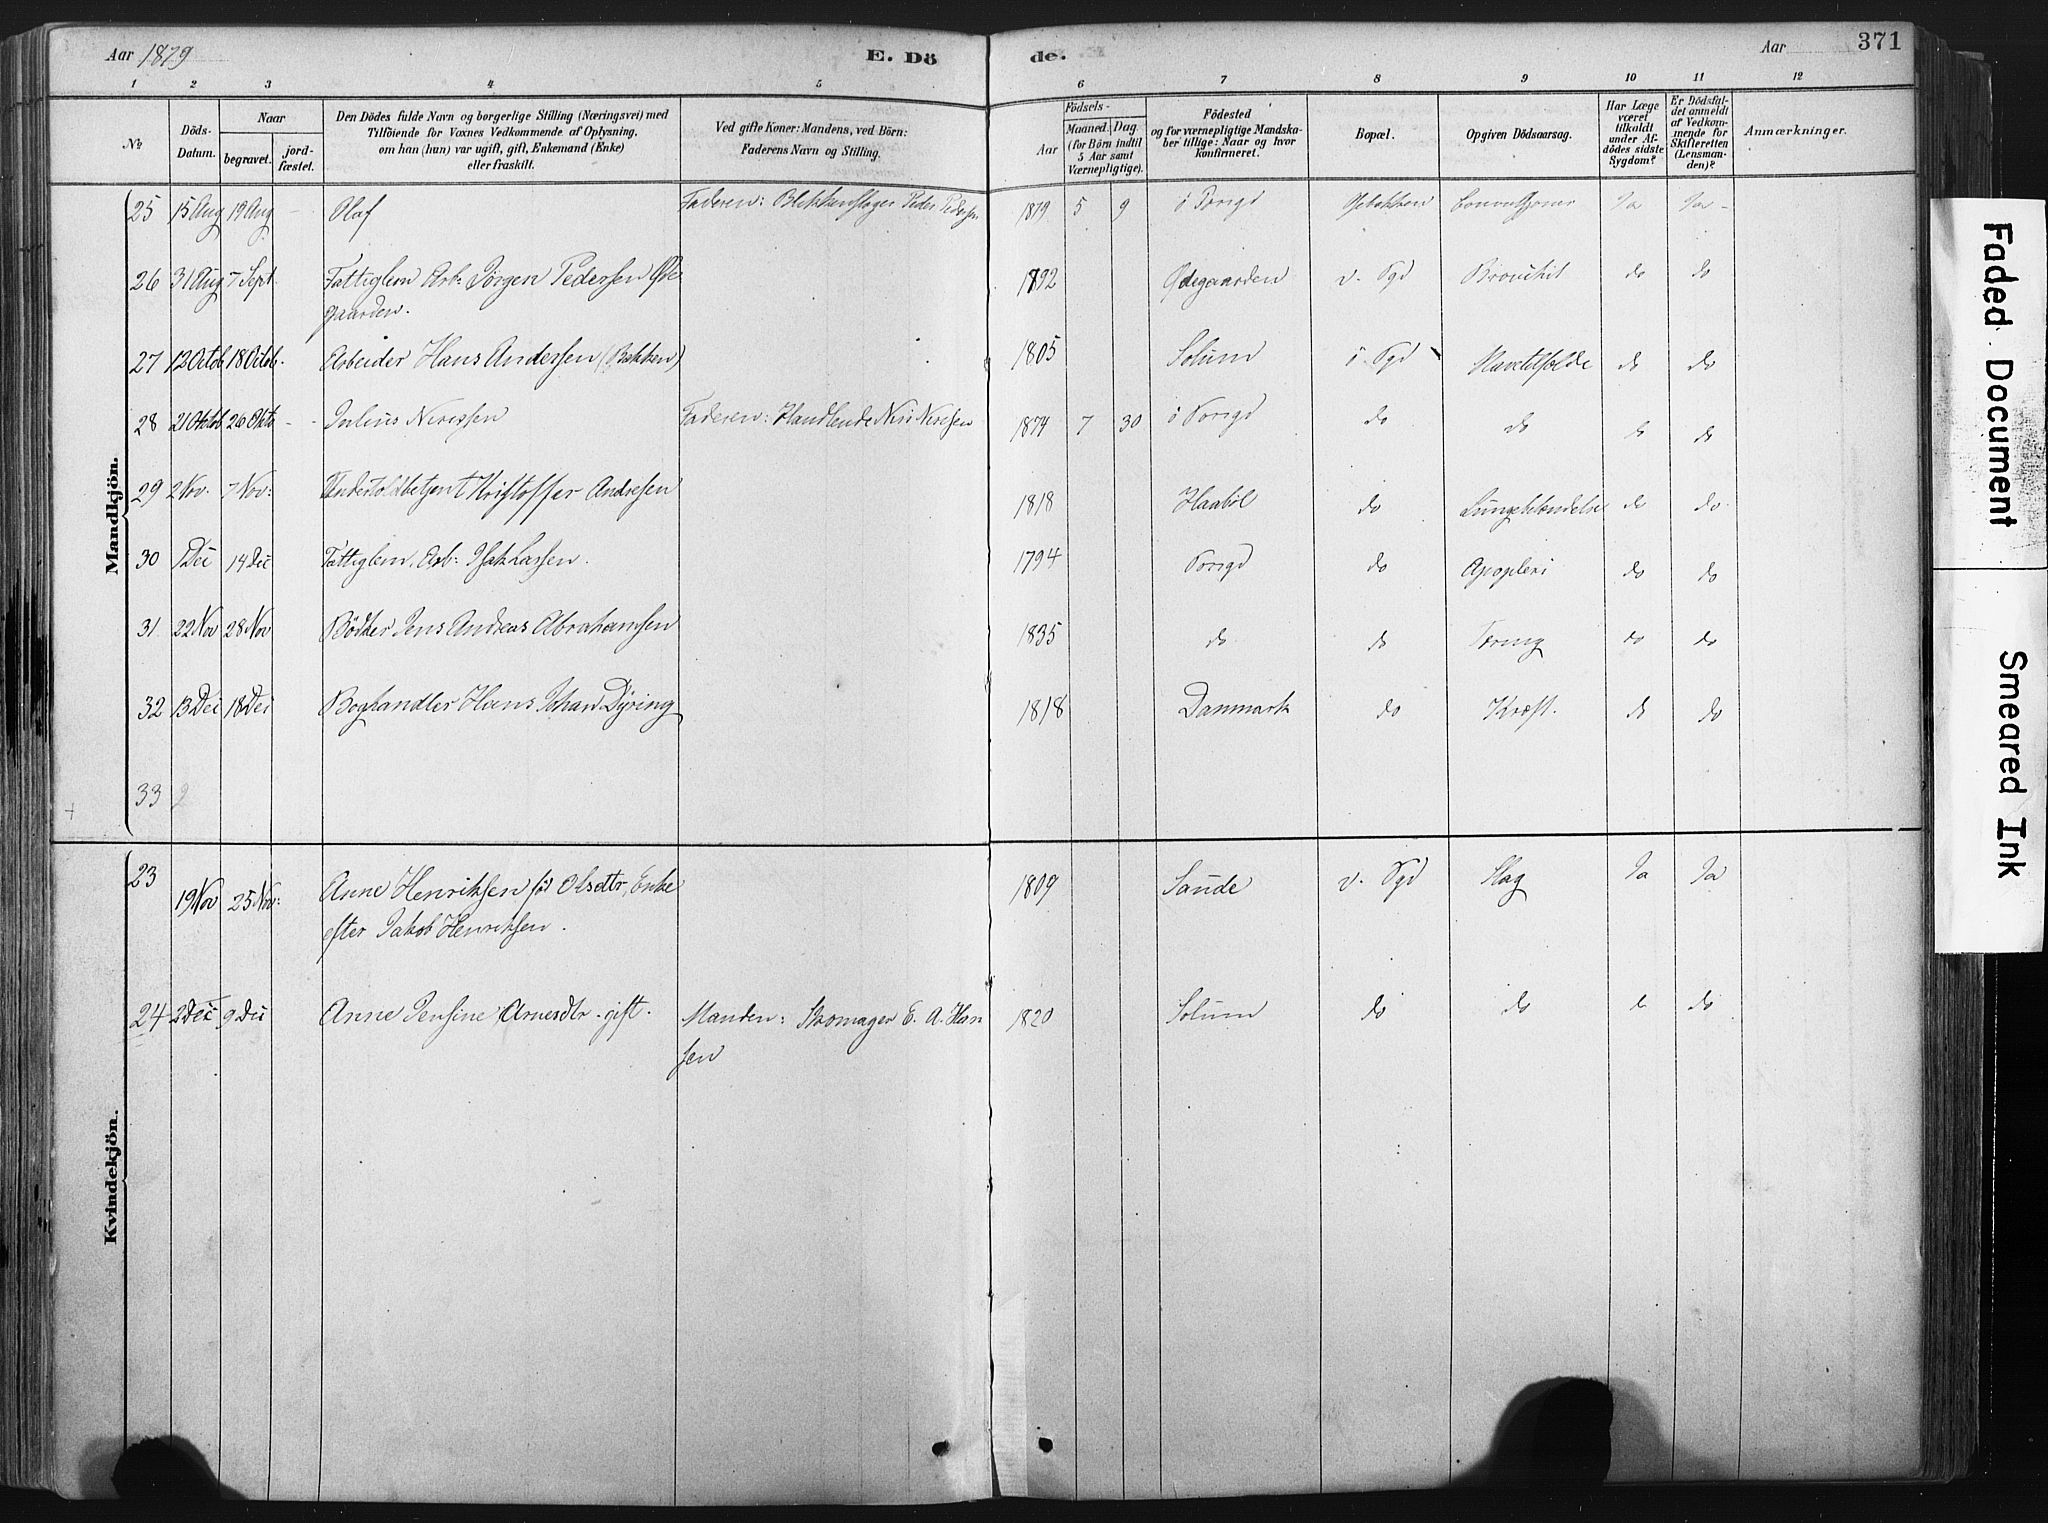 Aar 1879 E. Dö de. Aar 371
1 2 3 4 5 6 7 8 9 10 11 12
№ Döds-Datum. Naar begravet. jord-fæstet.
Den Dödes fulde Navn og borgerlige Stilling (Næringsvei) med
Tilföiende for Voxnes Vedkommende af Oplysning,
om han (hun) var ugift, gift, Enkemand (Enke)
eller fraskilt.
Ved gifte Koner: Mandens, ved Börn:
Faderens Navn og Stilling.
Födsels-
Aar Maaned. Dag
(for Börn indtil
5 Aar samt
Værnepligtige).
Födested
og for værnepligtige Mandska-
ber tillige: Naar og hvor
konfirmeret.
Bopæl.
Opgiven Dödsaarsag.
Har Læge
været
tilkaldt
under Af-
dödes sidste
Sygdom?
Er Dödsfal-
det anmeldt
af Vedkom-
mende for
Skifteretten
(Lensman-
den)?
Anmærkninger.
Mandkjön.
25 15 Aug 19 Aug - Olaf Faderen: Blikkenslager Peder Pedersen 1879 5 9 i Porsgd Ja Ja -
26 31 Aug 7 Sept Fattiglem Arb: Jörgen Pedersen Øde 1792 Ødegaarden v. Pgd Bronchit do do
gaarden.
27 12 Octob 18 Octob. Arbeider Hans Andersen (Bakken) 1805 Solum ö Pgd do do
28 21 Oktob 26 Okto - Julius Nirisen Faderen: Handlende Niri Nirisen 1874 7 30 i Porsgd do do do do
29 2 Nov. 7 Nov: Undertoldbetjent Kristoffer Andresen 1818 Haaböl do Lungebetændelse do do
30 1 Dec 14 Dec Fattiglem, Arb: Isak Larsen. 1794 Porsgd do Apoplexi do do
31 22 Nov 28 Nov Bödker Jens Andreas Abrahamsen 1835 do do Tæring do do
32 13 Dec 18 Dec Boghandler Hans Johan Dyring 1818 Danmark do Kræft. do do
33
Kvindekjön.
23 19 Nov 25 Nov: Anne Henriksen fö Olsdtr, Enke 1809 Sande v. Pgd Slag Ja Ja
efter Jakob Henriksen.
24 2 Dec 9 Dec Anne Jensine Arnesdtr. gift. Manden: Skomager E. A. Han 1820 Solum do do do do
sen
Faded Document
Smeared Ink